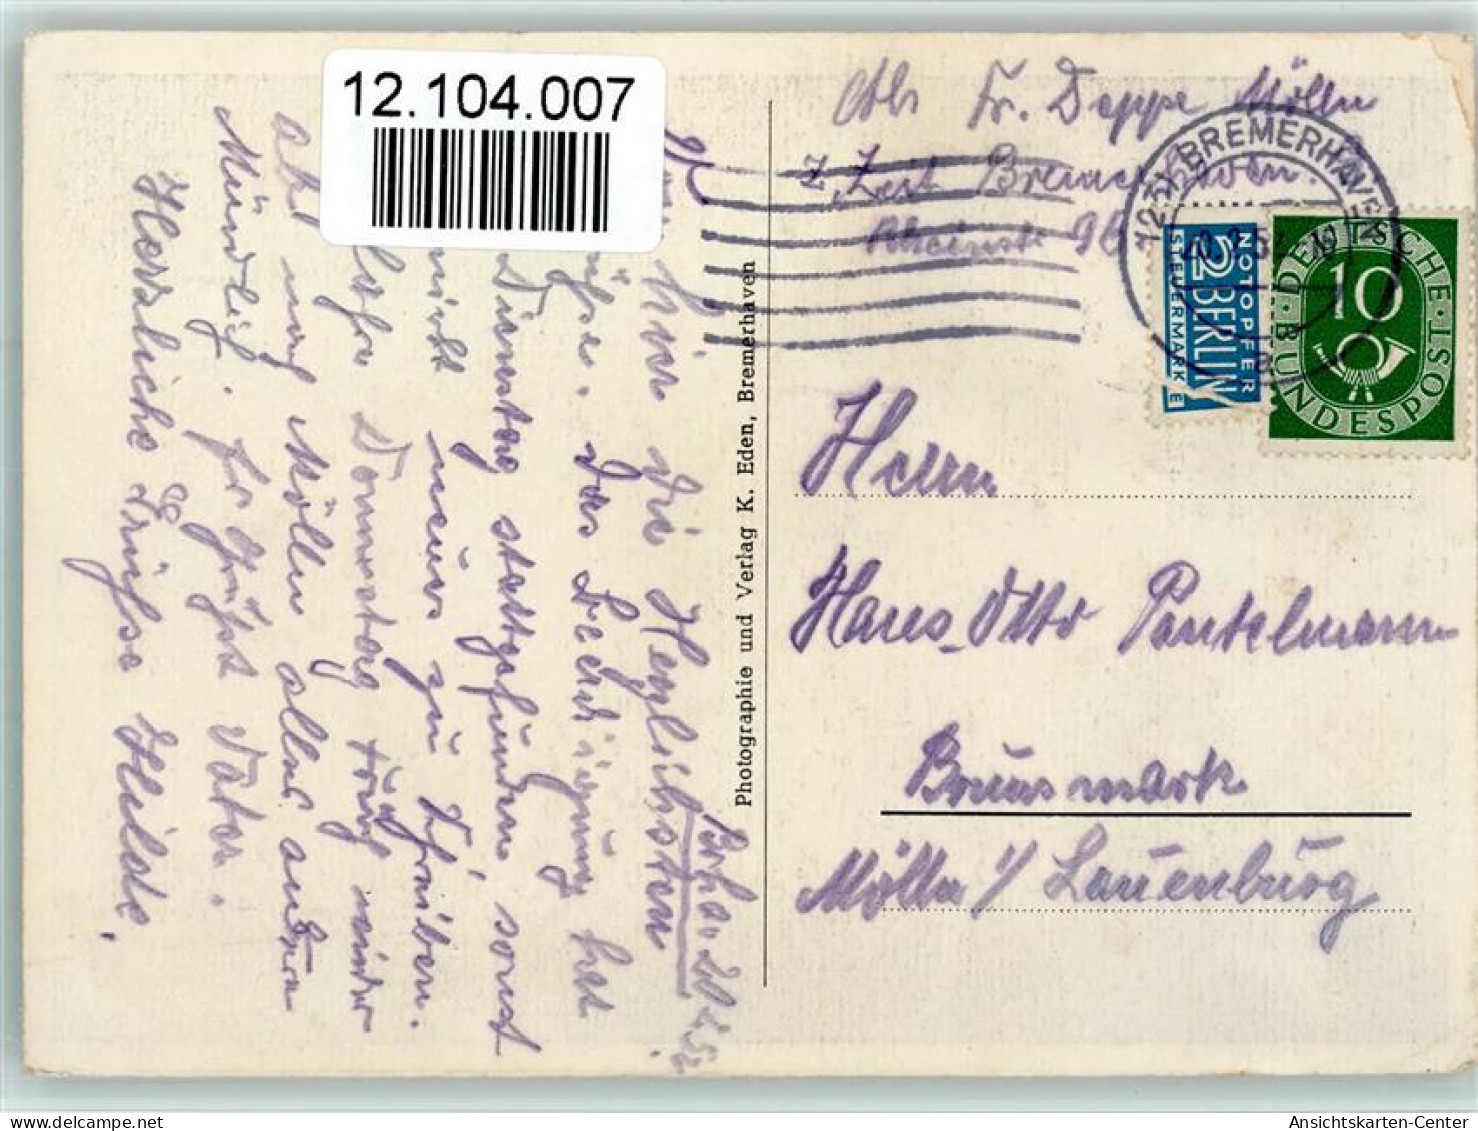 12.104.007
Abs Fr. Deppe Mölln
z. Zeit Bremerhaven.
Rheinstr. 96
(23) BREMERHAVEN
a
NOTOPFER
2 BERLIN
STEUERMARKE
DEUTSCHE BUNDESPOST
10
Herrn
Hans-Otto Pantelmann
Brunsmark
Mölln i/ Lauenburg
Photographie und Verlag K. Eden, Bremerhaven
Brhav. 20
hier die Herzlichsten
Grüsse. Das Beerdigung hat
Dienstag stattgefunden, sonst
nicht neues zu schreiben.
Donnerstag früh wieder
ab nach Mölln alles andere
Mündlich. Es grüßt Vater.
Herzliche Grüsse Hilde.
Ansichtskarten-Center
www.delcampe.net